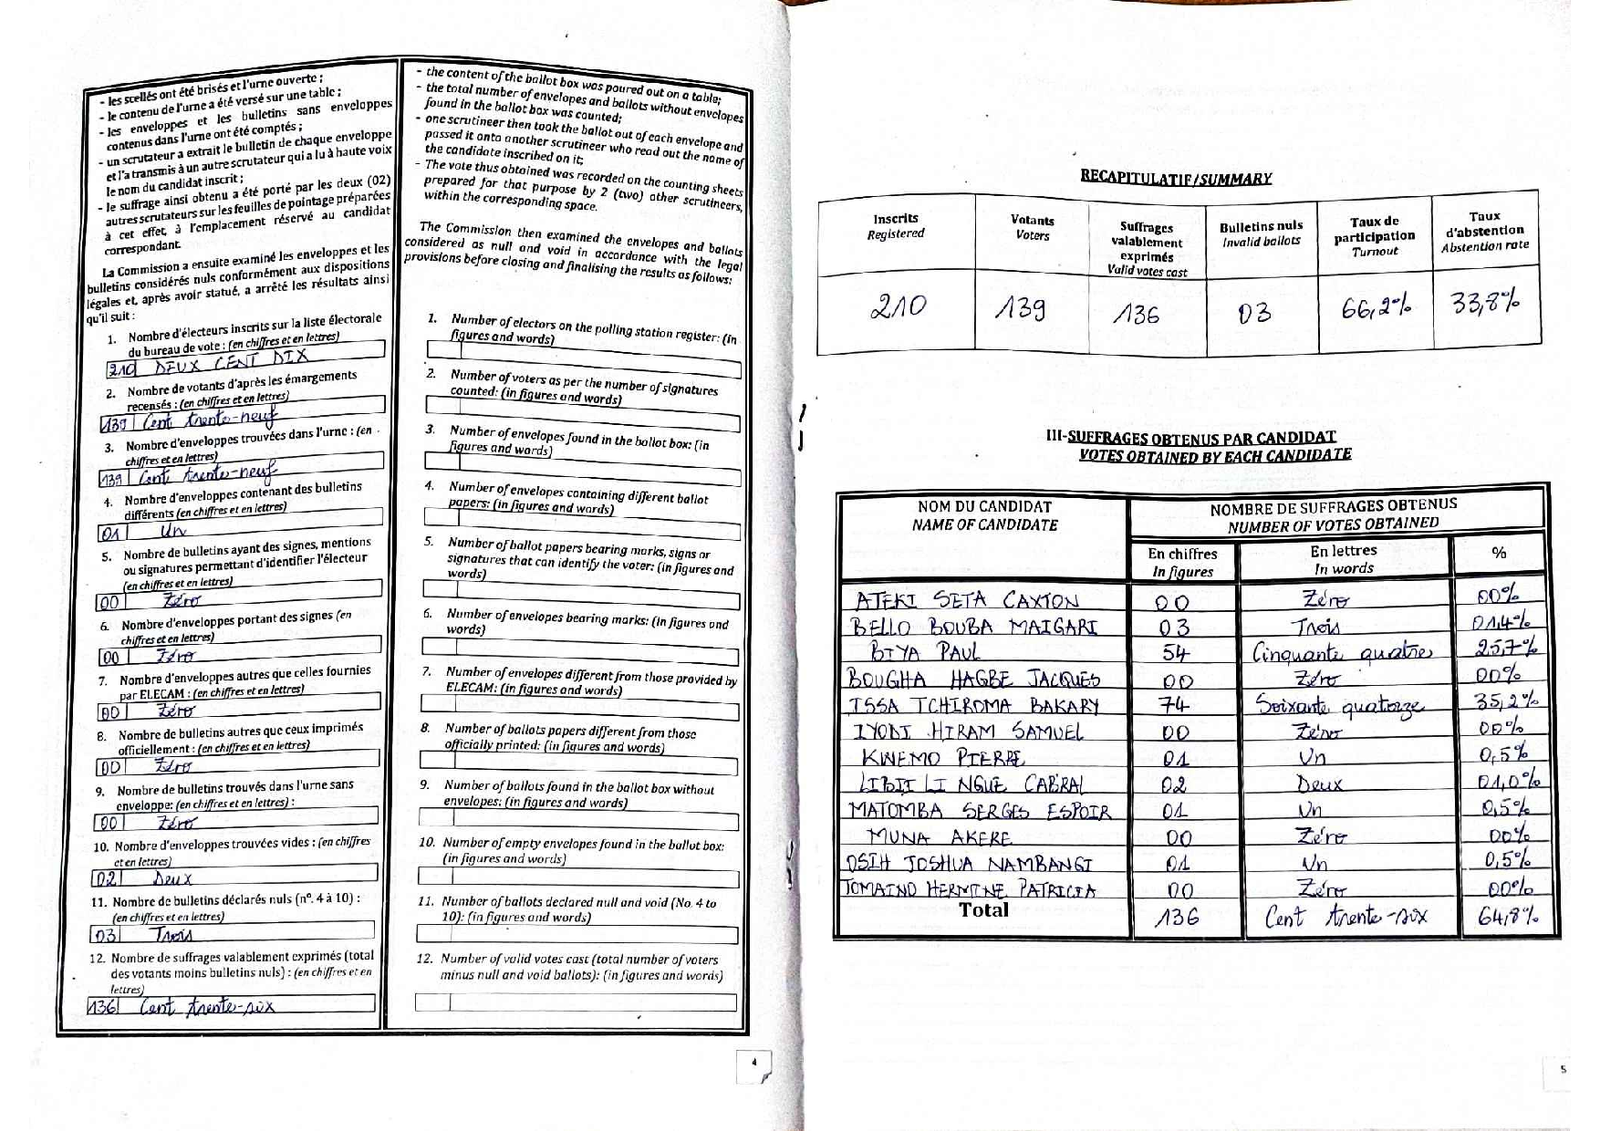 - les scellés ont été brisés et l'urne ouverte ;
- le contenu de l'urne a été versé sur une table ;
- les enveloppes et les bulletins sans enveloppes
contenus dans l'urne ont été comptés ;
- un scrutateur a extrait le bulletin de chaque enveloppe
et l'a transmis à un autre scrutateur qui a lu à haute voix
le nom du candidat inscrit ;
- le suffrage ainsi obtenu a été porté par les deux (02)
autres scrutateurs sur les feuilles de pointage préparées
à cet effet, à l'emplacement réservé au candidat
correspondant.
La Commission a ensuite examiné les enveloppes et les
bulletins considérés nuls conformément aux dispositions
légales et, après avoir statué, a arrêté les résultats ainsi
qu'il suit :
1. Nombre d'électeurs inscrits sur la liste électorale
du bureau de vote : (en chiffres et en lettres)
210 DEUX CENT DIX
2. Nombre de votants d'après les émargements
recensés : (en chiffres et en lettres)
139 Cent trente-neuf
3. Nombre d'enveloppes trouvées dans l'urne : (en
chiffres et en lettres)
139 Cent trente-neuf
4. Nombre d'enveloppes contenant des bulletins
différents (en chiffres et en lettres)
01 Un
5. Nombre de bulletins ayant des signes, mentions
ou signatures permettant d'identifier l'électeur
(en chiffres et en lettres)
00 Zéro
6. Nombre d'enveloppes portant des signes (en
chiffres et en lettres)
00 Zéro
7. Nombre d'enveloppes autres que celles fournies
par ELECAM : (en chiffres et en lettres)
00 Zéro
8. Nombre de bulletins autres que ceux imprimés
officiellement : (en chiffres et en lettres)
00 Zéro
9. Nombre de bulletins trouvés dans l'urne sans
enveloppe: (en chiffres et en lettres) :
00 Zéro
10. Nombre d'enveloppes trouvées vides : (en chiffres
et en lettres)
02 Deux
11. Nombre de bulletins déclarés nuls (n°. 4 à 10) :
(en chiffres et en lettres)
03 Trois
12. Nombre de suffrages valablement exprimés (total
des votants moins bulletins nuls) : (en chiffres et en
lettres)
136 Cent trente-six
- the content of the ballot box was poured out on a table;
- the total number of envelopes and ballots without envelopes
found in the ballot box was counted;
- one scrutineer then took the ballot out of each envelope and
passed it onto another scrutineer who read out the name of
the candidate inscribed on it;
- The vote thus obtained was recorded on the counting sheets
prepared for that purpose by 2 (two) other scrutineers,
within the corresponding space.
The Commission then examined the envelopes and ballots
considered as null and void in accordance with the legal
provisions before closing and finalising the results as follows:
1. Number of electors on the polling station register: (in
figures and words)
2. Number of voters as per the number of signatures
counted: (in figures and words)
3. Number of envelopes found in the ballot box: (in
figures and words)
4. Number of envelopes containing different ballot
papers: (in figures and words)
5. Number of ballot papers bearing marks, signs or
signatures that can identify the voter: (in figures and
words)
6. Number of envelopes bearing marks: (in figures and
words)
7. Number of envelopes different from those provided by
ELECAM: (in figures and words)
8. Number of ballots papers different from those
officially printed: (in figures and words)
9. Number of ballots found in the ballot box without
envelopes: (in figures and words)
10. Number of empty envelopes found in the ballot box:
(in figures and words)
11. Number of ballots declared null and void (No. 4 to
10): (in figures and words)
12. Number of valid votes cast (total number of voters
minus null and void ballots): (in figures and words)
4
RECAPITULATIF/SUMMARY
Inscrits Registered Votants Voters Suffrages valablement exprimés Valid votes cast Bulletins nuls Invalid ballots Taux de participation Turnout Taux d'abstention Abstention rate
210 139 136 03 66,2% 33,8%
III-SUFFRAGES OBTENUS PAR CANDIDAT
VOTES OBTAINED BY EACH CANDIDATE
NOM DU CANDIDAT NOMBRE DE SUFFRAGES OBTENUS
NAME OF CANDIDATE NUMBER OF VOTES OBTAINED
En chiffres En lettres %
In figures In words
ATEKI SETA CAXTON 00 Zéro 00%
BELLO BOUBA MAIGARI 03 Trois 01,4%
BIYA PAUL 54 Cinquante quatre 25,7%
BOUGHA HAGBE JACQUES 00 Zéro 00%
ISSA TCHIROMA BAKARY 74 Soixante quatorze 35,2%
IYODI HIRAM SAMUEL 00 Zéro 00%
KWEMO PIERRE 01 Un 0,5%
LIBII LI NGUE CABRAL 02 Deux 01,0%
MATOMBA SERGES ESPOIR 01 Un 0,5%
MUNA AKERE 00 Zéro 00%
OSIH JOSHUA NAMBANGI 01 Un 0,5%
TOMAINO HERMINE PATRICIA 00 Zéro 00%
Total 136 Cent trente-six 64,8%
5